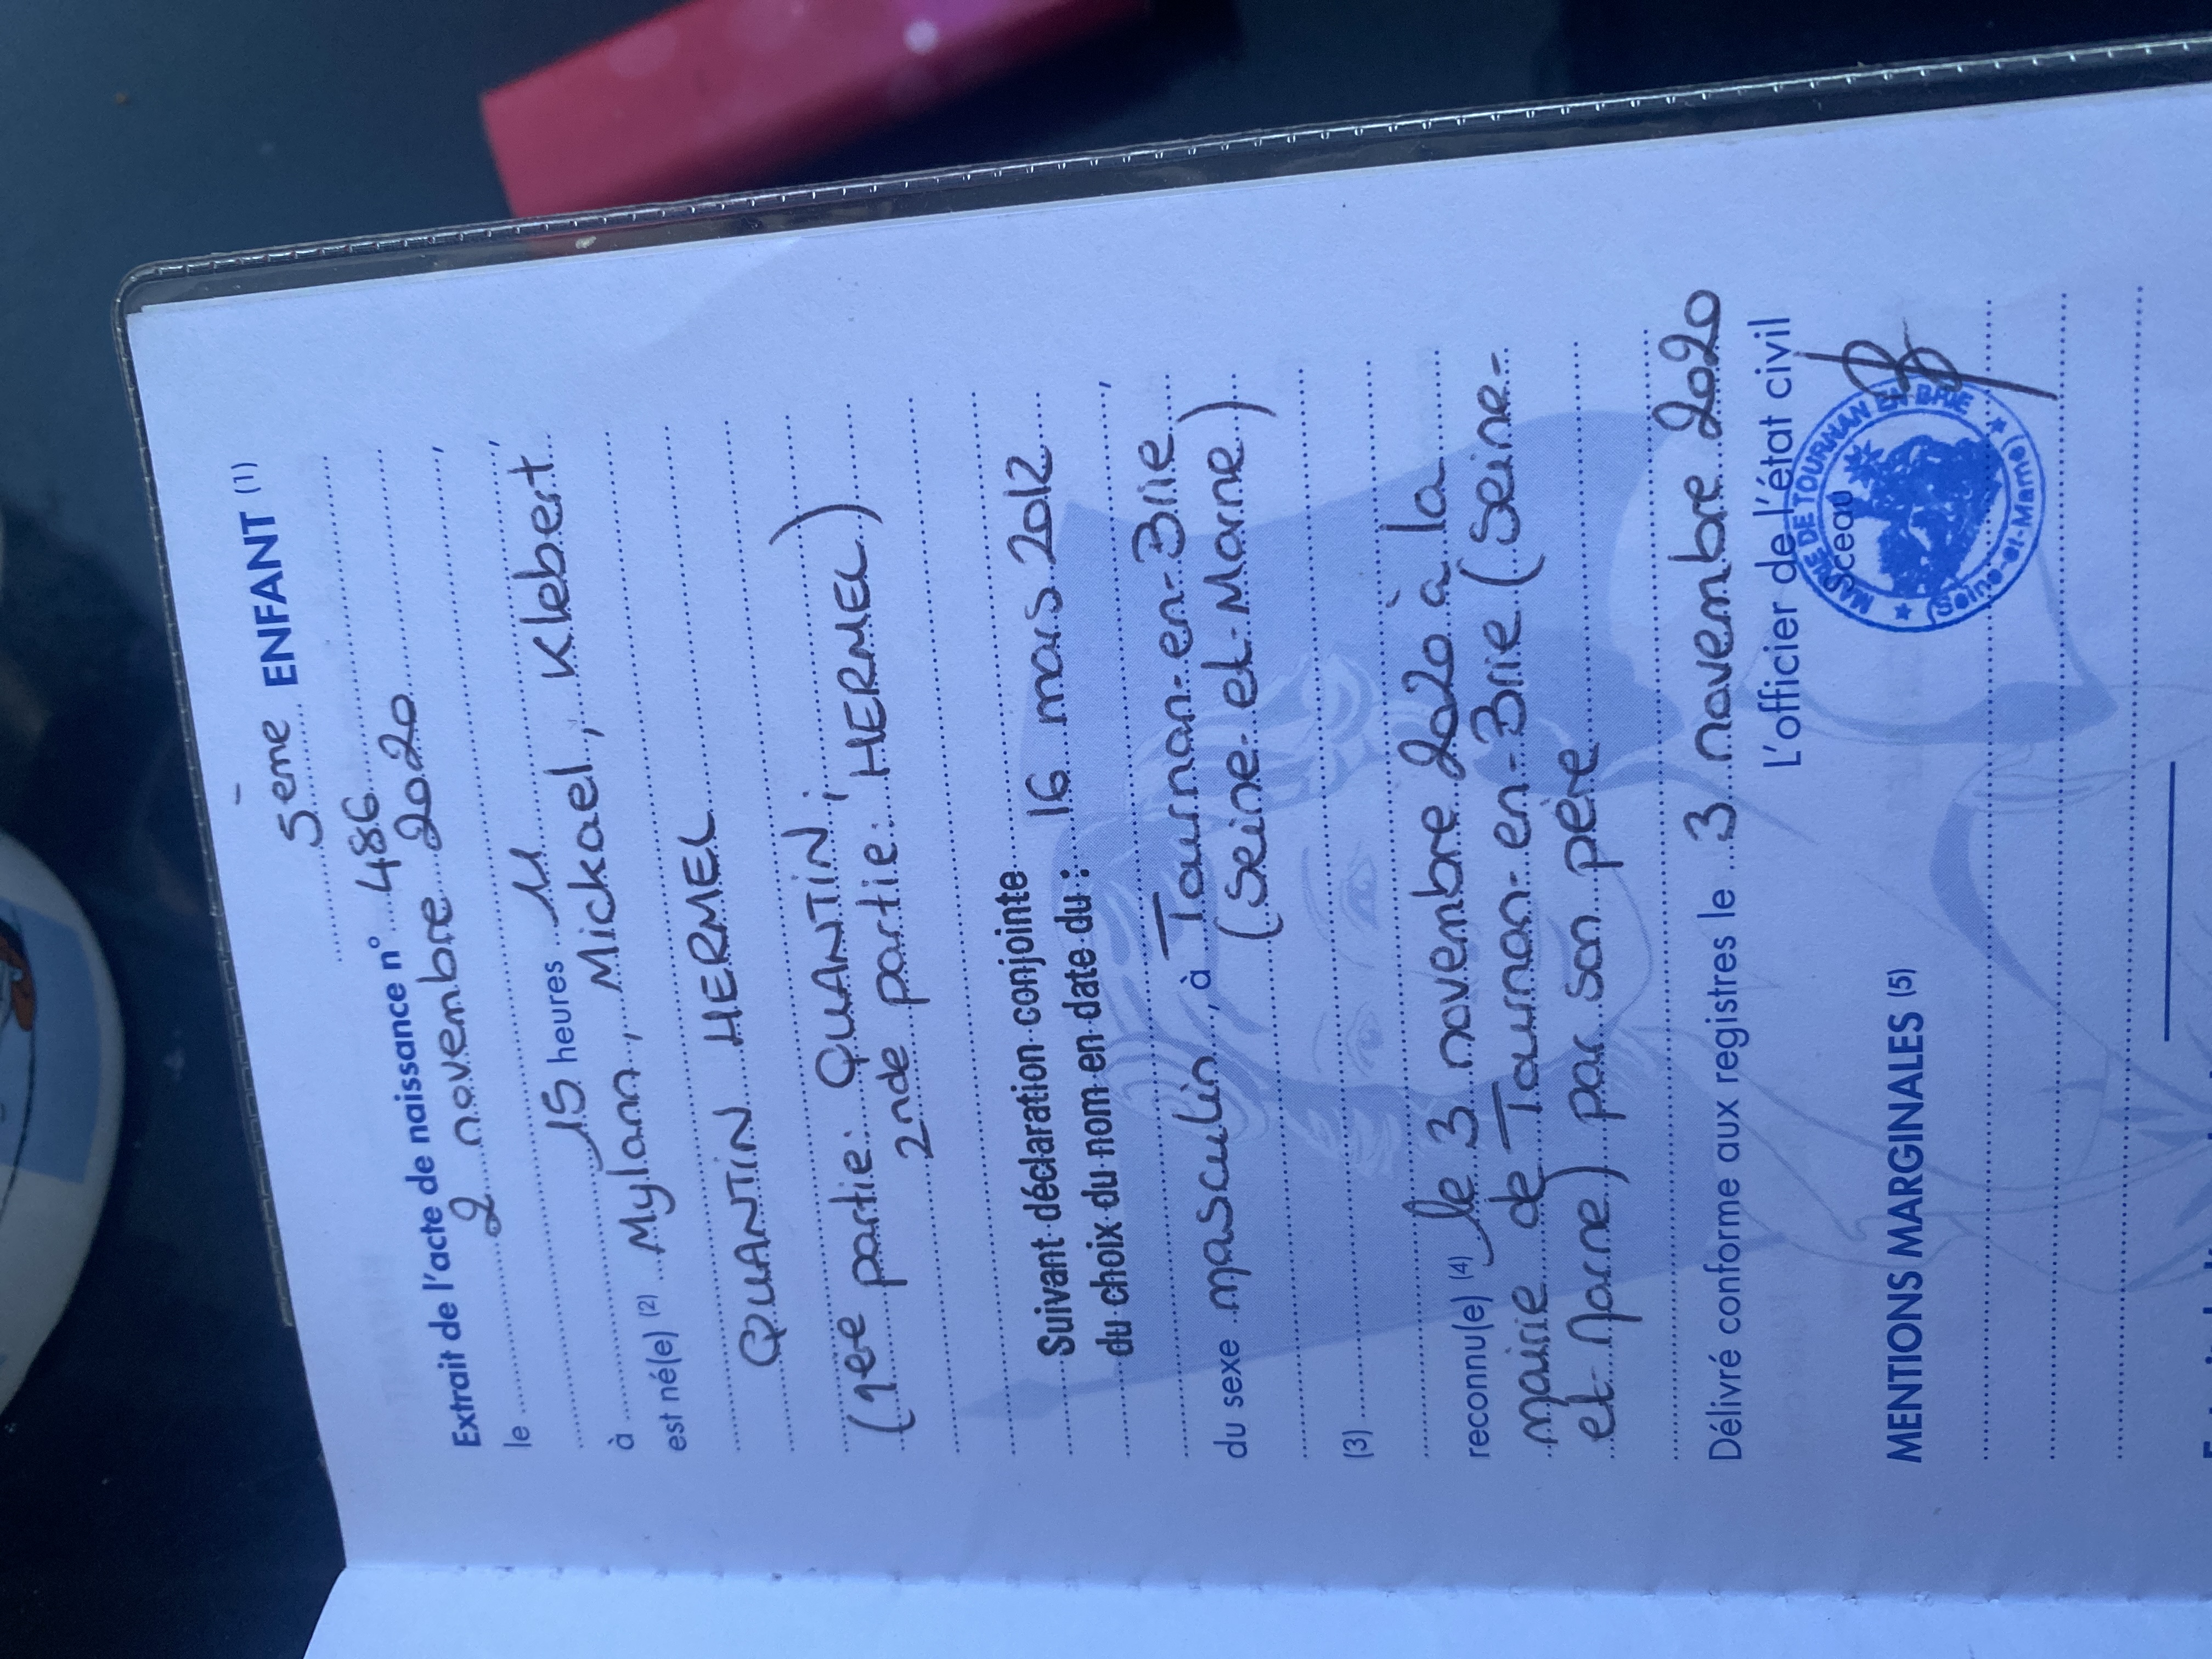 5ème ENFANT (1)
Extrait de l'acte de naissance n° 486
le 2 novembre 2020
à 15 heures 11
est né(e) (2) Mylann, Mickael, Klebert
QUANTIN HERMEL
(1ère partie: QUANTIN;
2nde partie: HERMEL)
Suivant déclaration conjointe
du choix du nom en date du : 16 mars 2012
du sexe masculin, à Tournan-en-Brie
(Seine-et-Marne)
(3)
reconnu(e) (4) le 3 novembre 2020 à la
mairie de Tournan-en-Brie (Seine-
et-Marne) par son père
Délivré conforme aux registres le 3 novembre 2020
L'officier de l'état civil
Sceau
MAIRIE DE TOURNAN EN BRIE
(Seine-et-Marne)
MENTIONS MARGINALES (5)